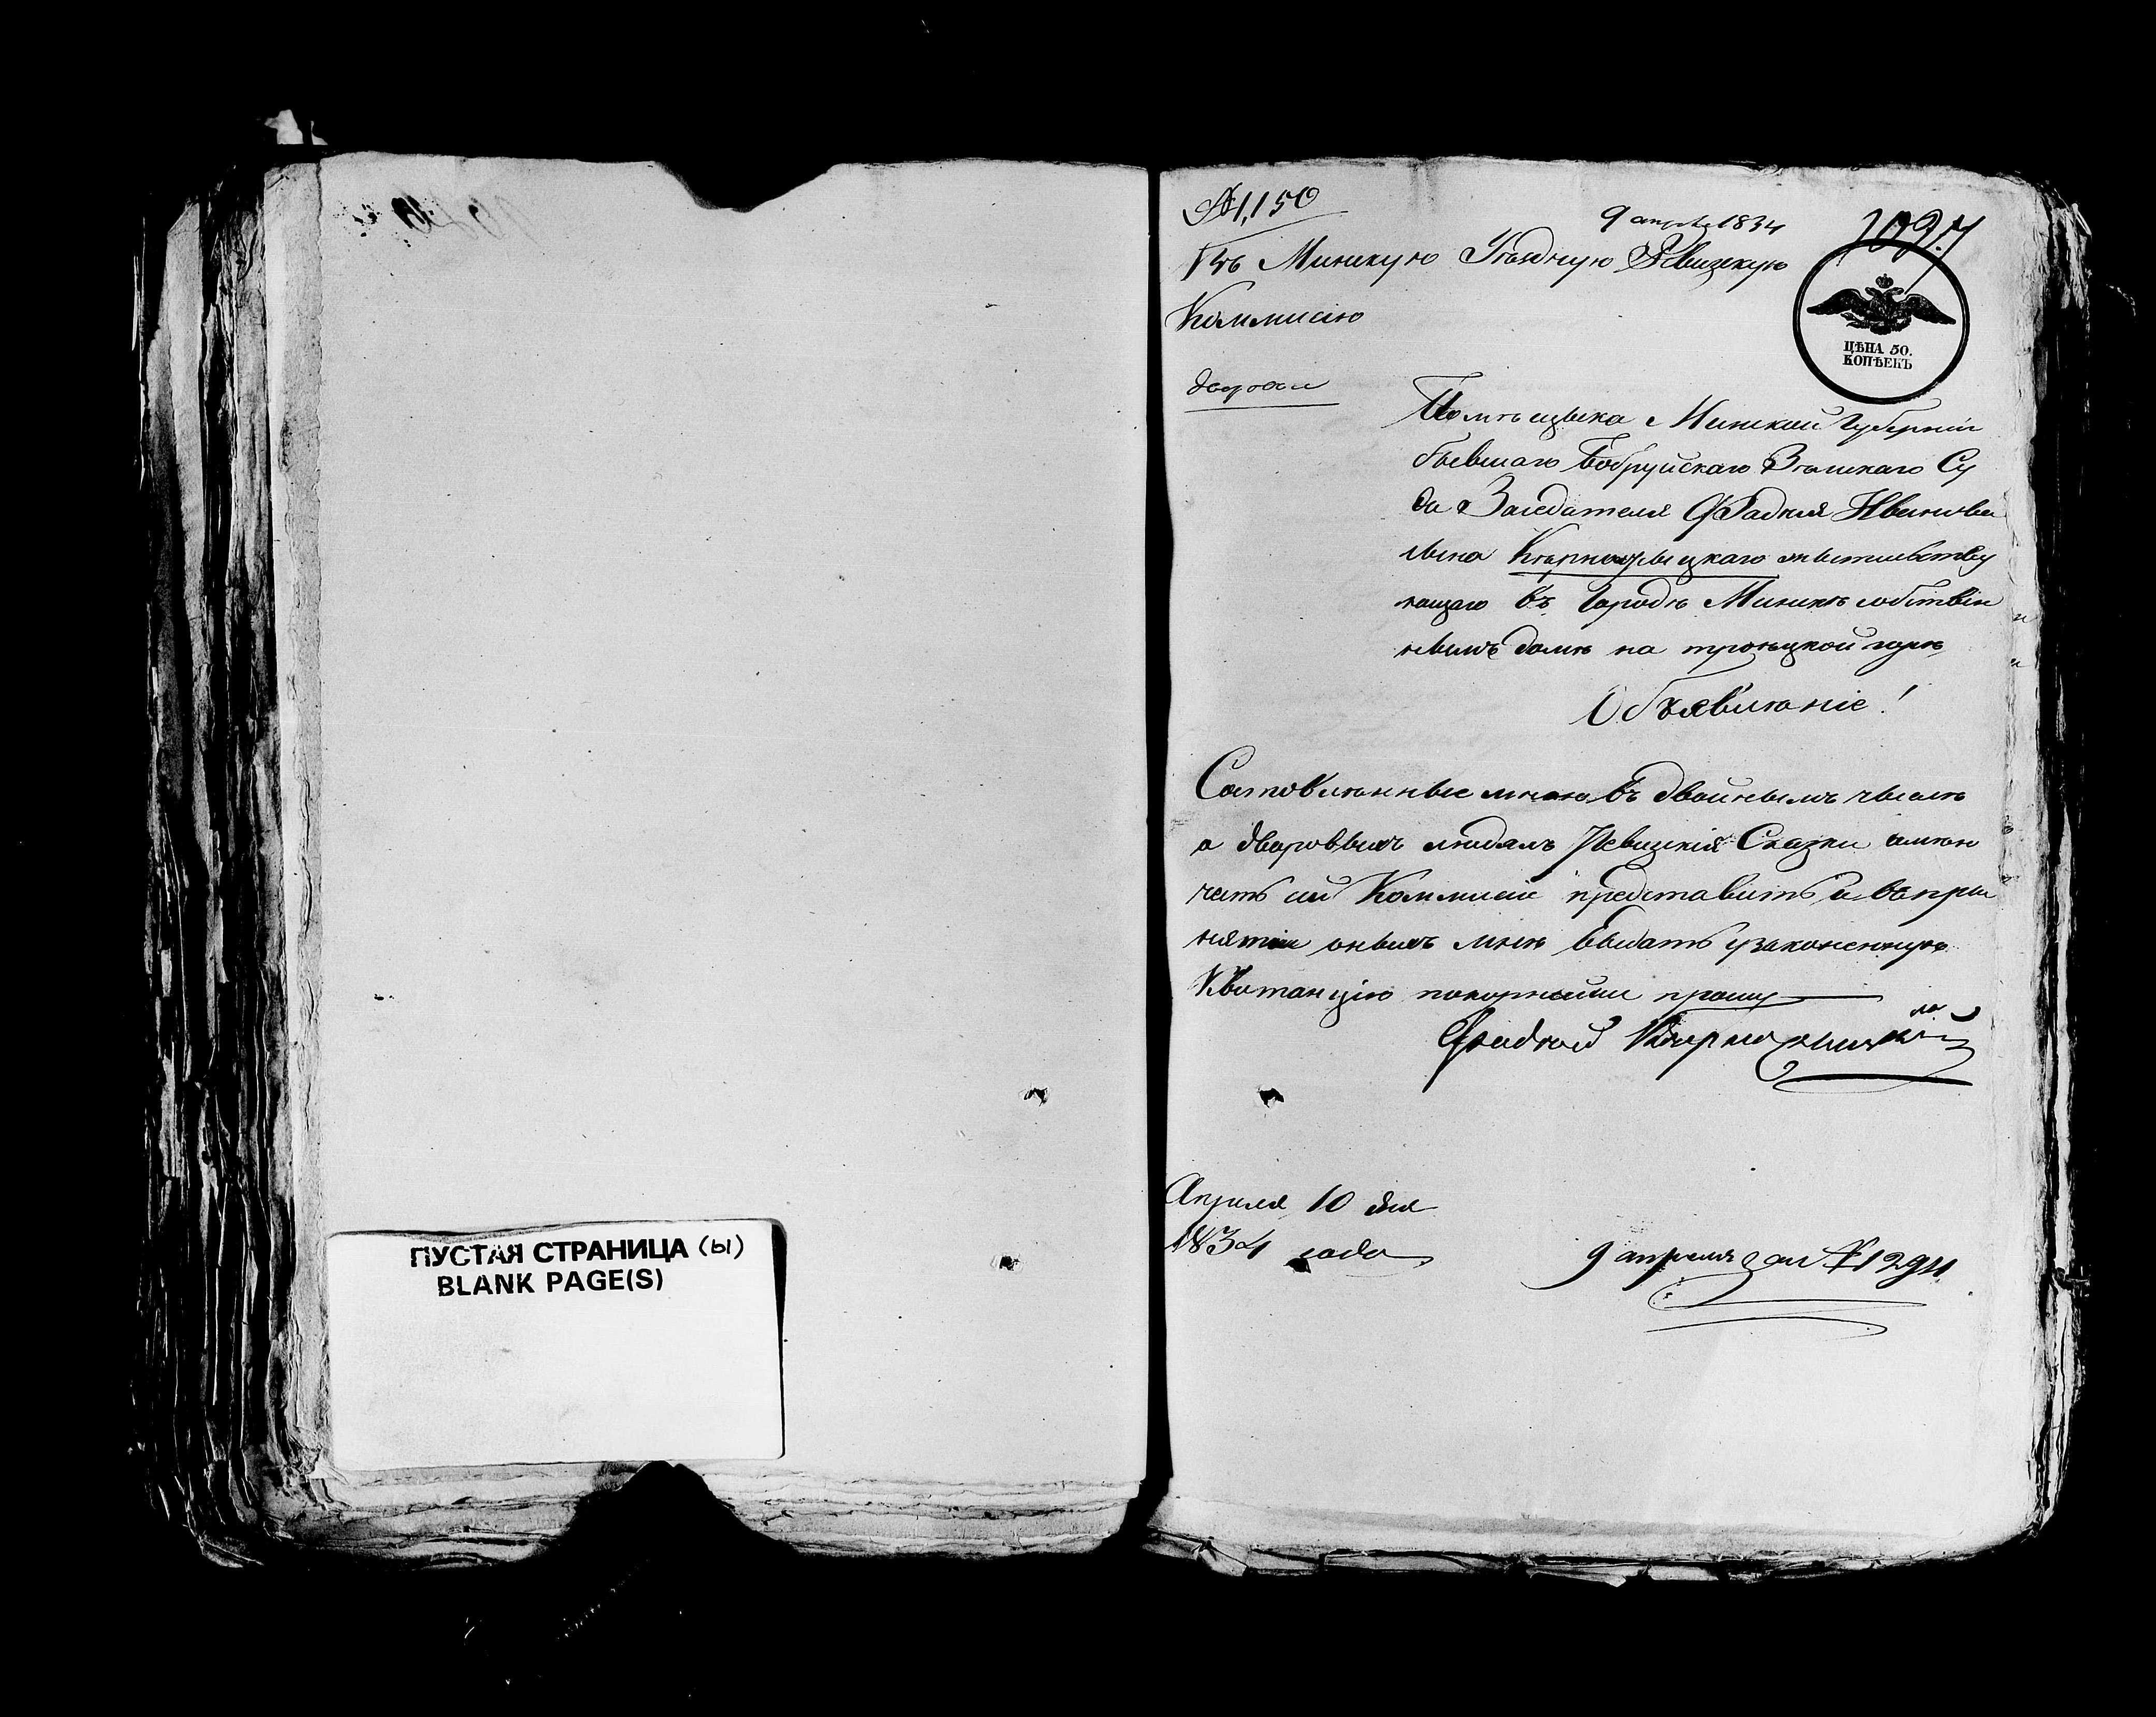 ПУСТАЯ СТРАНИЦА (ы)
BLANK PAGE(S)
№ 1,150
9 апреля 1834
1097
Въ Минскую Уездную Ревизскую
Коммисію
ЦѢНА 50.
КОПѢЕКЪ
Помѣщыка Минской Губерніи
бывшаго Бобруйскаго Земскаго Су
да Заседателя Фадѣя Иванова
сына жытельству
ющаго въ Городѣ Минскѣ собствен
нымъ домѣ на троицкой горѣ
Объявленіе!
Составленные мною въ двойнымъ числѣ
о дворовыхъ людямъ Ревизкія Сказки имѣю
честь сей Коммисіи представить и въ пры
нятіи оныхъ мнѣ выдать узаконенную
Квитанцію покорнейше прошу
Фадей
Апреля 10 дня
1834 года
9 апреля № 1294